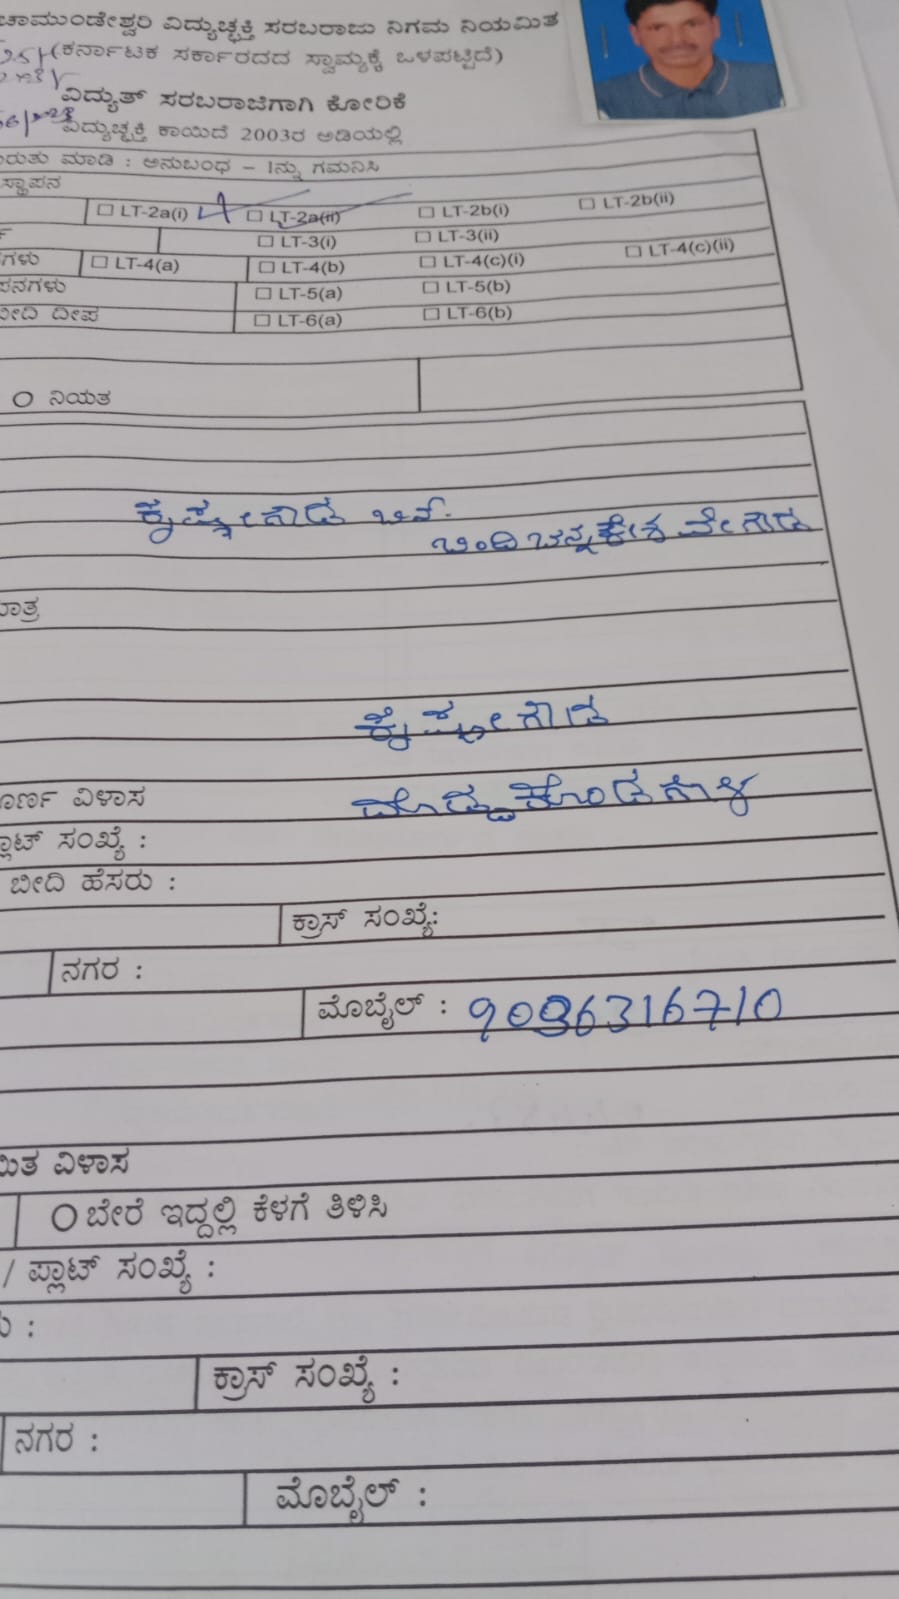 ಚಾಮುಂಡೇಶ್ವರಿ ವಿದ್ಯುಚ್ಛಕ್ತಿ ಸರಬರಾಜು ನಿಗಮ ನಿಯಮಿತ
(ಕರ್ನಾಟಕ ಸರ್ಕಾರದದ ಸ್ವಾಮ್ಯಕ್ಕೆ ಒಳಪಟ್ಟಿದೆ)
ವಿದ್ಯುತ್ ಸರಬರಾಜಿಗಾಗಿ ಕೋರಿಕೆ
ವಿದ್ಯುಚ್ಛಕ್ತಿ ಕಾಯಿದೆ 2003ರ ಅಡಿಯಲ್ಲಿ
ರುತು ಮಾಡಿ : ಅನುಬಂಧ – 1ನ್ನು ಗಮನಿಸಿ
ಸ್ಥಾಪನ
☐ LT-2a(i) ☐ LT-2a(ii) ☐ LT-2b(i) ☐ LT-2b(ii)
☐ LT-3(i) ☐ LT-3(ii)
ಗಳು ☐ LT-4(a) ☐ LT-4(b) ☐ LT-4(c)(i) ☐ LT-4(c)(ii)
ಪನಗಳು ☐ LT-5(a) ☐ LT-5(b)
ಬೀದಿ ದೀಪ ☐ LT-6(a) ☐ LT-6(b)
O ನಿಯತ
ಕೃಷ್ಣೇಗೌಡ ಬಿನ್.
ಬಿಂದಿ ಚನ್ನಕೇಶವೇಗೌಡ
ಮಾತ್ರ
ಕೃಷ್ಣೇಗೌಡ
ೂರ್ಣ ವಿಳಾಸ ದೊಡ್ಡಕೊಂಡಗುಳ
ಪ್ಲಾಟ್ ಸಂಖ್ಯೆ :
ಬೀದಿ ಹೆಸರು :
ಕ್ರಾಸ್ ಸಂಖ್ಯೆ:
ನಗರ :
ಮೊಬೈಲ್ :
ಮಿತ ವಿಳಾಸ
O ಬೇರೆ ಇದ್ದಲ್ಲಿ ಕೆಳಗೆ ತಿಳಿಸಿ
/ ಪ್ಲಾಟ್ ಸಂಖ್ಯೆ :
ು :
ಕ್ರಾಸ್ ಸಂಖ್ಯೆ :
ನಗರ :
ಮೊಬೈಲ್ :